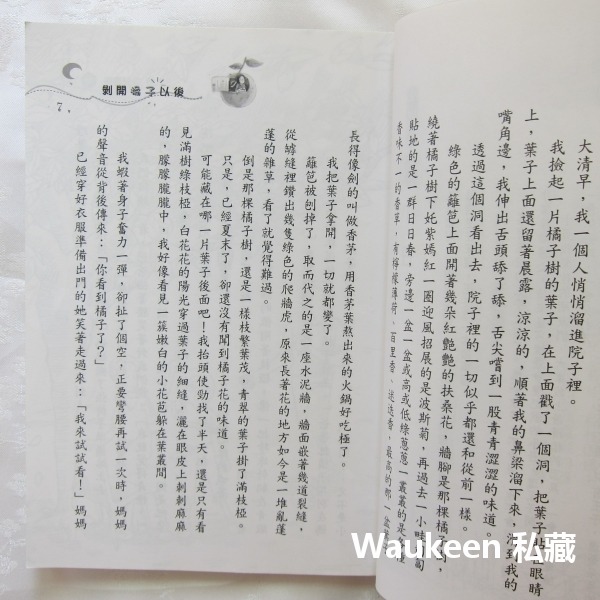 大清早，我一個人悄悄溜進院子裡。
我撿起一片橘子樹的葉子，在上面戳了一個洞，把葉子貼在眼睛
上，葉子上面還留著晨露，涼涼的，順著我的鼻梁溜下來，溜到我的
嘴角邊，我伸出舌頭舔了舔，舌尖嚐到一股青青澀澀的味道。
透過這個洞看出去，院子裡的一切似乎都還和從前一樣。
綠色的籬笆上面開著幾朵紅艷艷的扶桑花，牆腳是那棵橘子樹，
繞著橘子樹下妊紫嫣紅一圈迎風招展的是波斯菊，再過去一小畦匍匐
貼地的是一群日日春，旁邊一盆一盆或高或低綠蔥蔥一叢叢的是
香味不一的香草，有檸檬薄荷、百里香、迷迭香，最高的那一盆
剝開橘子以後
7
長得像劍的叫做香茅，用香茅葉熬出來的火鍋好吃極了。
我把葉子拿開，一切就都變了。
籬笆被刨掉了，取而代之的是一座水泥牆，牆面嵌著幾道裂縫，
從罅縫裡鑽出幾隻綠色的爬牆虎，原來長著花的地方如今是一堆亂蓬
蓬的雜草，看了就覺得難過。
倒是那棵橘子樹，還是一樣枝繁葉茂，青翠的葉子掛了滿枝椏。
只是，已經夏末了，卻還沒有聞到橘子花的味道。
可能藏在哪一片葉子後面吧！我抬頭使勁找了半天，還是只有看
見滿樹綠枝椏，白花花的陽光穿過葉子的細縫，灑在眼皮上刺刺麻麻
的，朦朦朧朧中，我好像看見一簇嫩白的小花苞躲在葉叢間。
我蝦著身子奮力一彈，卻扯了個空，正要彎腰再試一次時，媽媽
的聲音從背後傳來：「你看到橘子了？」
已經穿好衣服準備出門的她笑著走過來：「我來試試看！」媽媽
Waukeen 私藏